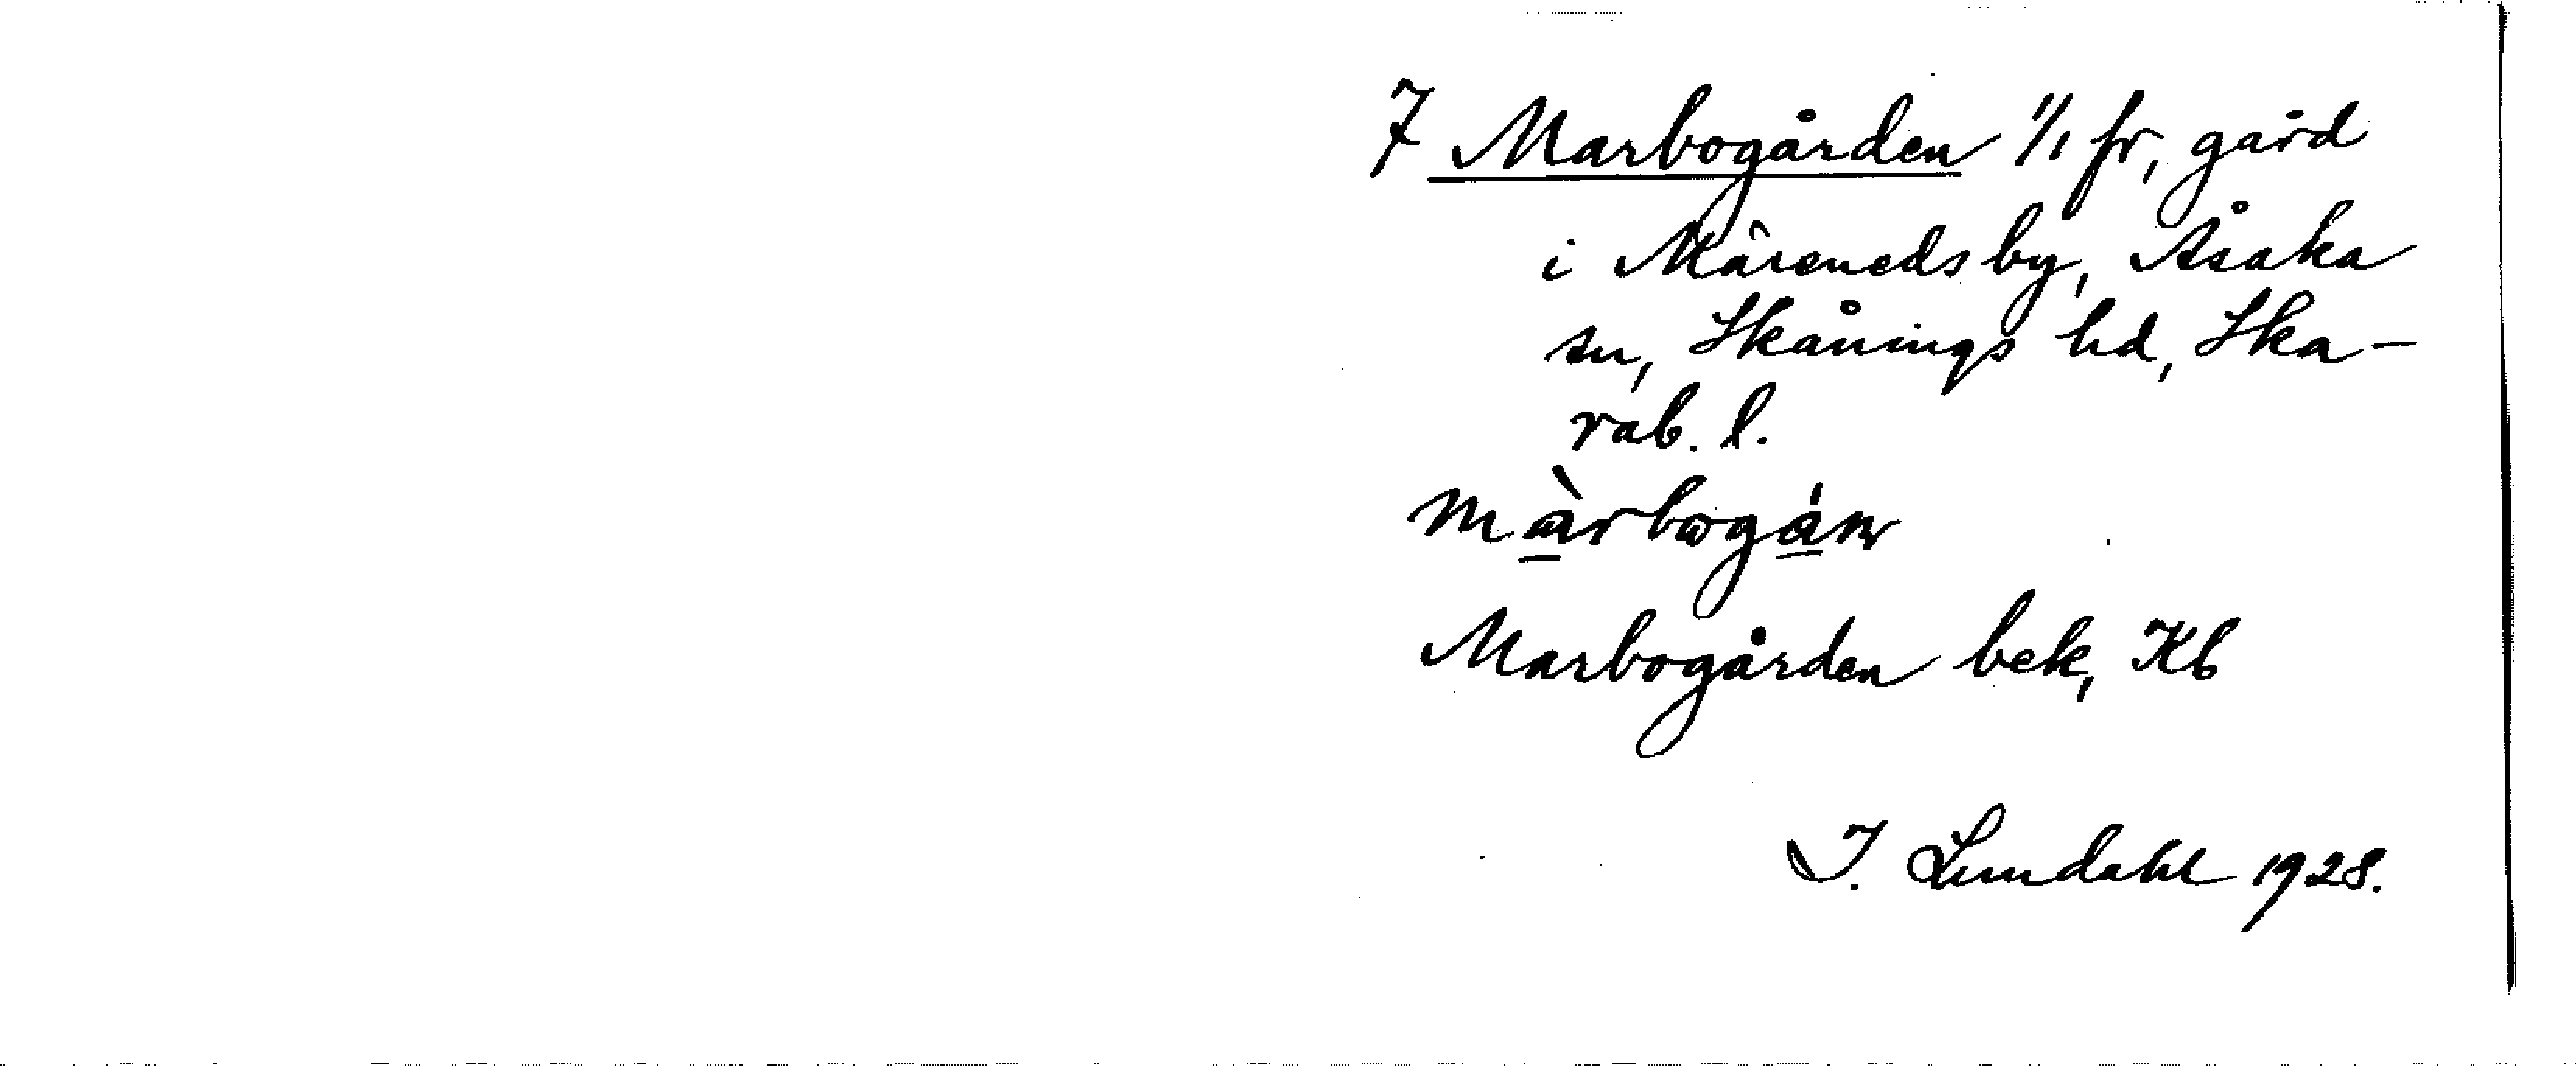 7 Marbogården 1/1 fr, gård
i Märeneds by, Åsaka
sn, Skånings hd, Ska-
rab. l.
màrbogán
Marbogården bek, Kb
I. Lundahl 1928.